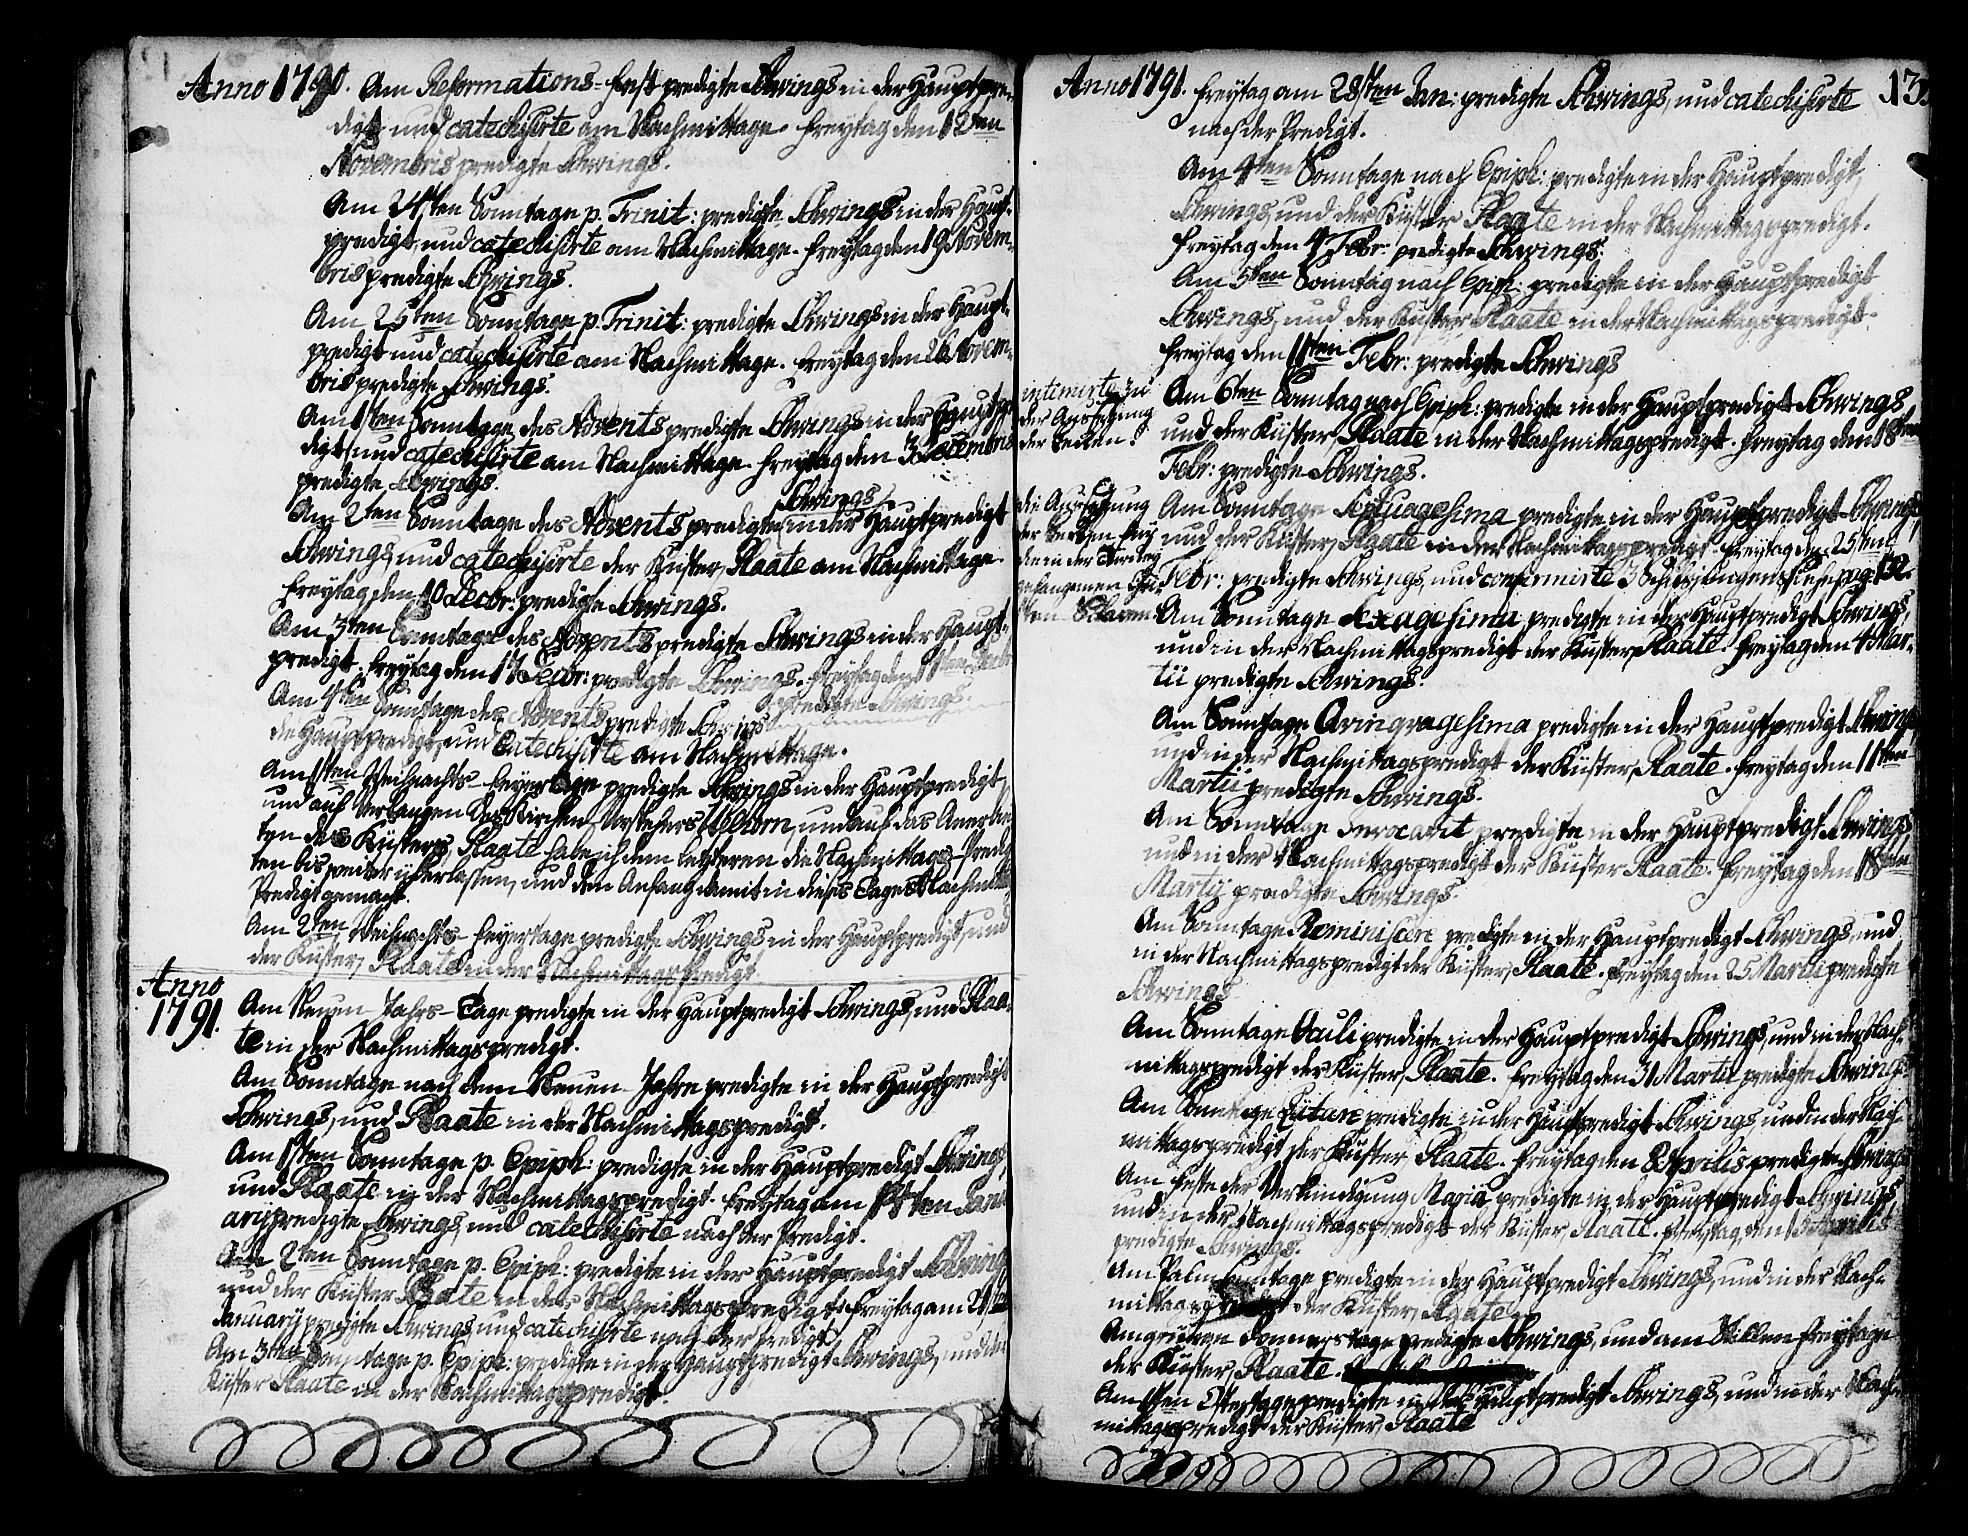 Anno 1790. Am Reformations-Fest predigte Schwings in der Hauptpre-
digt, und catechisirte am Nachmittage. Freytag den 12ten
Novembris predigte Schwings.
Am 24sten Sonntage p. Trinit: predigte Schwings in der Haupt-
predigt, und catechisirte am Nachmittage. Freytag den 19 Novem-
bris predigte Schwings.
Am 25ten Sonntage p. Trinit: predigte Schwings in der Haupt-
predigt und catechisirte am Nachmittage. Freytag den 26 Novem-
bris predigte Schwings.
Am 1sten Sonntage des Advents predigte Schwings in der Hauptpre-
digt, und catechisirte am Nachmittage. Freytag den 3 Decembris
predigte Schwings.
Schwings
Am 2ten Sonntage des Advents predigte in der Hauptpredigt
Schwings, und catechisirte der Küster, Staate am Nachmittage.
Freytag den 10 Decbr: predigte Schwings.
Am 3ten Sonntage des Advents predigte Schwings in der Haupt-
predigt. Freytag den 17 Decbr: predigte Schwings. Freytag den
predigte Schwings.
Am 4ten Sonntage des Advents predigte Schwings
die Hauptpredigt, und catechisirte am Nachmittage.
Am 1sten Weihnachts-Feyertage predigte Schwings in der Hauptpredigt,
und auf Verlangen des Kirchen-Vorstehers und auf das Anerbie-
ten des Küsters, Staate habe ich dem letzteren die Nachmittags-Predig-
ten bis weiter überlassen, und den Anfang damit in dieses Tages Nachmitt
Predigt gemacht.
Am 2ten Weihnachts-Feyertage predigte Schwings in der Hauptpredigt, und
der Küster, Staate in der Nachmittagspredigt.
Anno
1791.
Am Neuen-Jahrs-Tage predigte in der Hauptpredigt Schwings, und Staa-
te in der Nachmittagspredigt.
Am Sonntage nach dem Neuen-Jahre predigte in der Hauptpredigt
Schwings, und Staate in der Nachmittagspredigt.
Am 1sten Sonntage p. Epiph: predigte in der Hauptpredigt Schwings,
und Staate in der Nachmittagspredigt. Freytag am 14ten Janu-
ary predigte Schwings, und catechisirte nach der Predigt.
Am 2ten Sonntage p. Epiph: predigte in der Hauptpredigt Schwings
und der Küster Staate in der Nachmittagspredigt. Freytag am 21sten
January predigte Schwings, und catechisirte nach der Predigt.
Am 3ten Sonntage p. Epiph: predigte in der Hauptpredigt Schwings, und der
Küster Staate in der Nachmittagspredigt.
Anno 1791. Freytag am 28sten Jan: predigte Schwings, und catechisirte
nach der Predigt.
Am 4ten Sonntage nach Epiph: predigte in der Hauptpredigt,
Schwings, und der Küster Staate in der Nachmittagspredigt.
Freytag den 4 Febr: predigte Schwings.
Am 5ten Sonntag nach Epiph: predigte in der Hauptpredigt
Schwings, und der Küster, Staate in der Nachmittagspredigt.
Freytag den 11ten Febr: predigte Schwings
intimirte zu
der Aussetzung
der Becken.
Am 6ten Sonntag nach Epiph: predigte in der Hauptpredigt Schwings,
und der Küster, Staate in der Nachmittagspredigt. Freytag den 18ten
Febr: predigte Schwings.
die Aussetzung
der Becken für
die in der Türkey
gefangenen Chri-
sten Sclaven
Am Sonntage Septuagesima predigte in der Hauptpredigt Schwings,
und der Küster, Staate in der Nachmittagspredigt. Freytag den 25ten
Febr: predigte Schwings, und confirmirte 3 siehe pag. 132.
Am Sonntage Sexagesima predigte in der Hauptpredigt Schwings,
und in der Nachmittagspredigt der Küster, Staate. Freytag den 4 Mar-
tii predigte Schwings.
Am Sonntage Qvinqvagesima predigte in der Hauptpredigt Schwings
und in der Nachmittagspredigt der Küster, Staate. Freytag den 11ten
Martii predigte Schwings.
Am Sonntage Invocavit predigte in der Hauptpredigt Schwings,
und in der Nachmittagspredigt der Küster Staate. Freytag den 18ten
Martij predigte Schwings.
Am Sonntage Reminiscere predigte in der Hauptpredigt Schwings, und
in der Nachmittagspredigt der Küster, Staate. Freytag den 25 Martii predigte
Schwings.
Am Sonntage Oculi predigte in der Hauptpredigt Schwings, und in der Nach-
mittagspredigt der Küster, Staate. Freytag den 31 Martii predigte Schwings
Am Sonntage Lätare predigte in der Hauptpredigt Schwings und in der Nach-
mittagspredigt der Küster, Staate. Freytag den 8 Aprilis predigte Schwings
Am Feste der Verkündigung Mariä predigte in der Hauptpredigt Schwings,
und in der Nachmittagspredigt der Küster, Staate. Freytag, den 15 Aprilis
predigte Schwings.
Am Palm Sonntage predigte in der Hauptpredigt Schwings, und in der Nach-
mittagspredigt der Küster, Staate.
Am grünen Donnerstage predigte Schwings, und am Stillen Freytage
der Küster, Staate.
Am 1sten Ostertage predigte in der Hauptpredigt Schwings, und in der Nach-
mittagspredigt der Küster, Staate